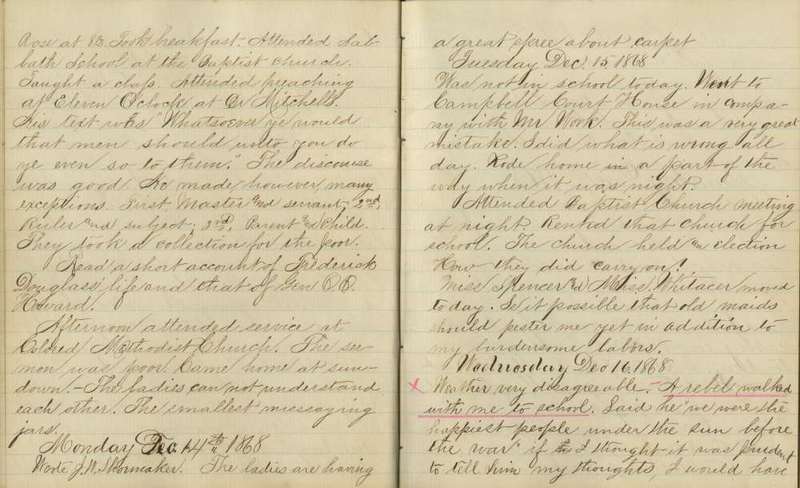 Rose at 8½. Took breakfast. Attended Sab-
bath School at the Baptist church.
Taught a class. Attended preaching
at Eleven O'clock at Mitchells.
His text was "Whatsoever ye would
that men should unto you do
ye even so to them." The discourse
was good. He made, however, many
exceptions. First Master and servant; 2nd,
Ruler and subject; 3rd, Parent and child.
They took a collection for the poor.
Read a short account of Frederick
Douglass' life and that of Gen O. O.
Howard.
Afternoon attended service at
Colored Methodist Church. The ser-
mon was poor. Came home at sun-
down. - The ladies can not understand
each other. The smallest missaying
jars.
Monday Dec. 14th 1868
Wrote J. W. Shormaker. The ladies are having
a great spree about carpet
Tuesday Dec. 15 1868
Was not in school today. Went to
Campbell Court House in compa-
ny with Mr Work. This was a very great
mistake. I did what is wrong all
day. Rode home in a part of the
way when it was night.
Attended Baptist Church meeting
at night Rented that church for
school. The church held an election
How they did carry on!
Miss Spencer and Miss Whitacer moved
today. Is it possible that old maids
should pester me yet in addition to
my burdensome labors.
Wednesday Dec 16, 1868
x Weather very disagreeable. - A rebel walked
with me to school. Said he "we were the
happiest people under the sun before
the war" if I thought it was prudent
to tell him my thoughts, I would have